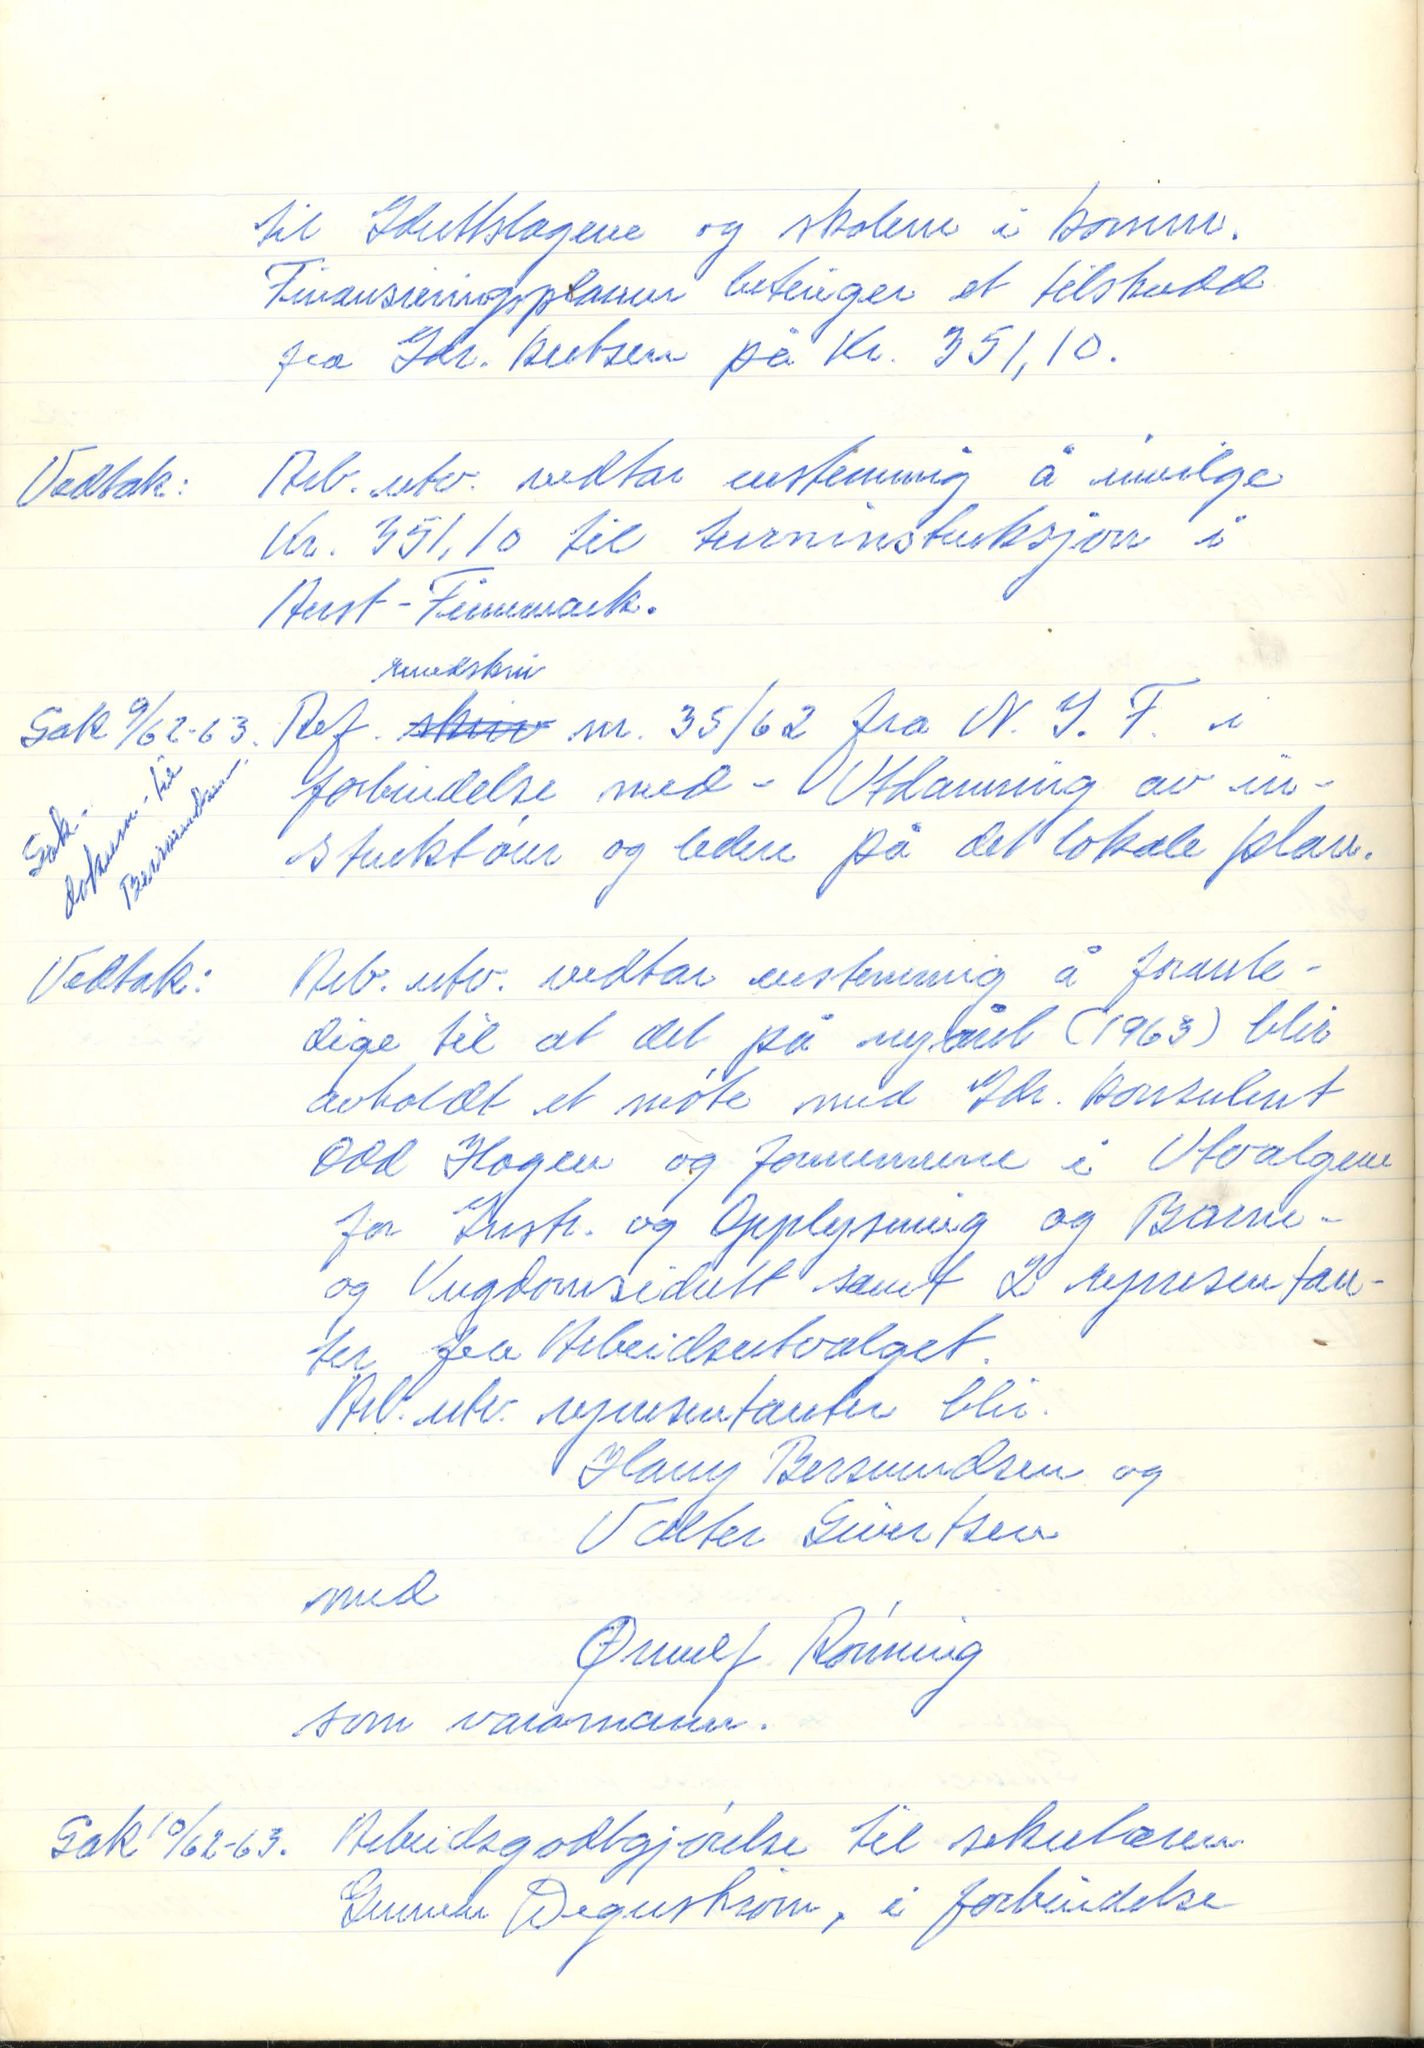 til Idrettslagene og skolene i komm.
Finansieringsplanen betinger et tilskudd
fra Idr. kretsen på Kr. 351,10.
Vedtak: Arb. utv. vedtar enstemmig å innvilge
Kr. 351,10 til turninstruksjon i
Aust-Finnmark.
rundskriv
Sak 9/62-63. Ref. skriv nr. 35/62 fra N. I. F. i
forbindelse med - Utdanning av in-
struktører og ledere på det lokale plan.
Sak-
dokum. til
Bersvendsen.
Vedtak: Arb. utv. vedtar enstemmig å foranle-
dige til at det på nyåret (1963) blir
avholdt et møte med Idr. konsulent
Odd Hagen og formennene i Utvalgene
for Instr. og Opplysning og Barne-
og Ungdomsidrett samt 2 representan-
ter fra Arbeidsutvalget.
Arb. utv. representanter blir.
Harry Bersvendsen og
Valter Sivertsen
med
Ørnulf Rønning
som varamann.
Sak 10/62-63. Arbeidsgodtgjørelse til sekretæren
Gunnar Wegnström, i forbindelse